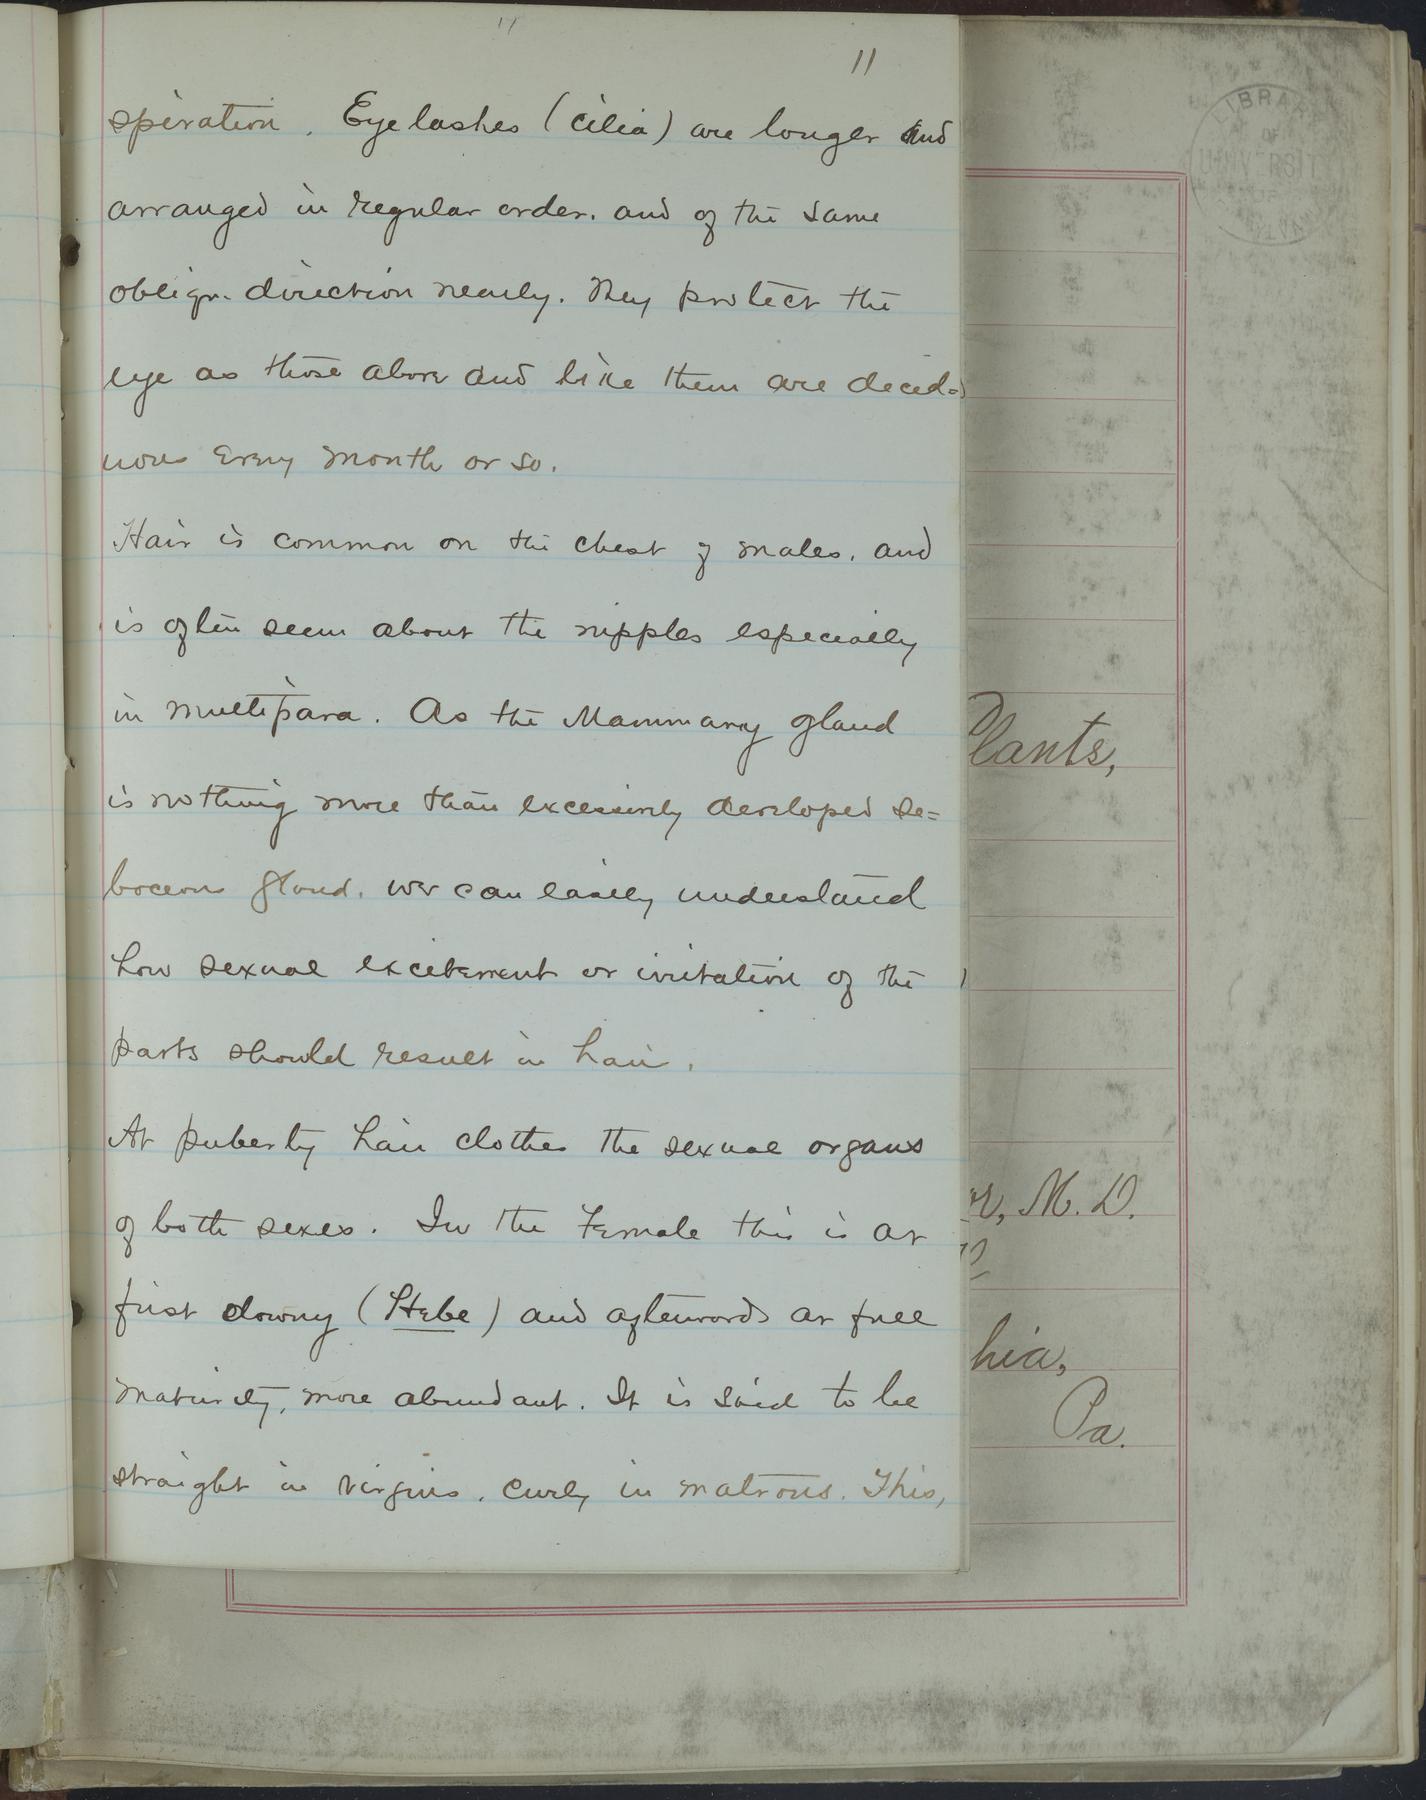 11
11
spiration. Eyelashes (cilia) are longer and
arranged in regular order. and of the same
obliqu. direction nearly. They protect the
eye as those above and like them are decid=
uous every month or so.
Hair is common on the chest of males, and
is often seen about the nipples especially
in multipara. As the Mammary gland
is nothing more than excessively developed se=
baceous gland, we can easily understand
how sexual excitement or irritation of the
parts should result in hair.
At puberty hair clothes the sexual organs
of both sexes. In the Female this is at
first downy (Hebe) and afterwards at full
maturity, more abundant. It is said to be
straight in virgins, curly in matrons. This,
LIBRARY
OF
UNIVERSIT
Plants,
or, M. D.
hia,
Pa.